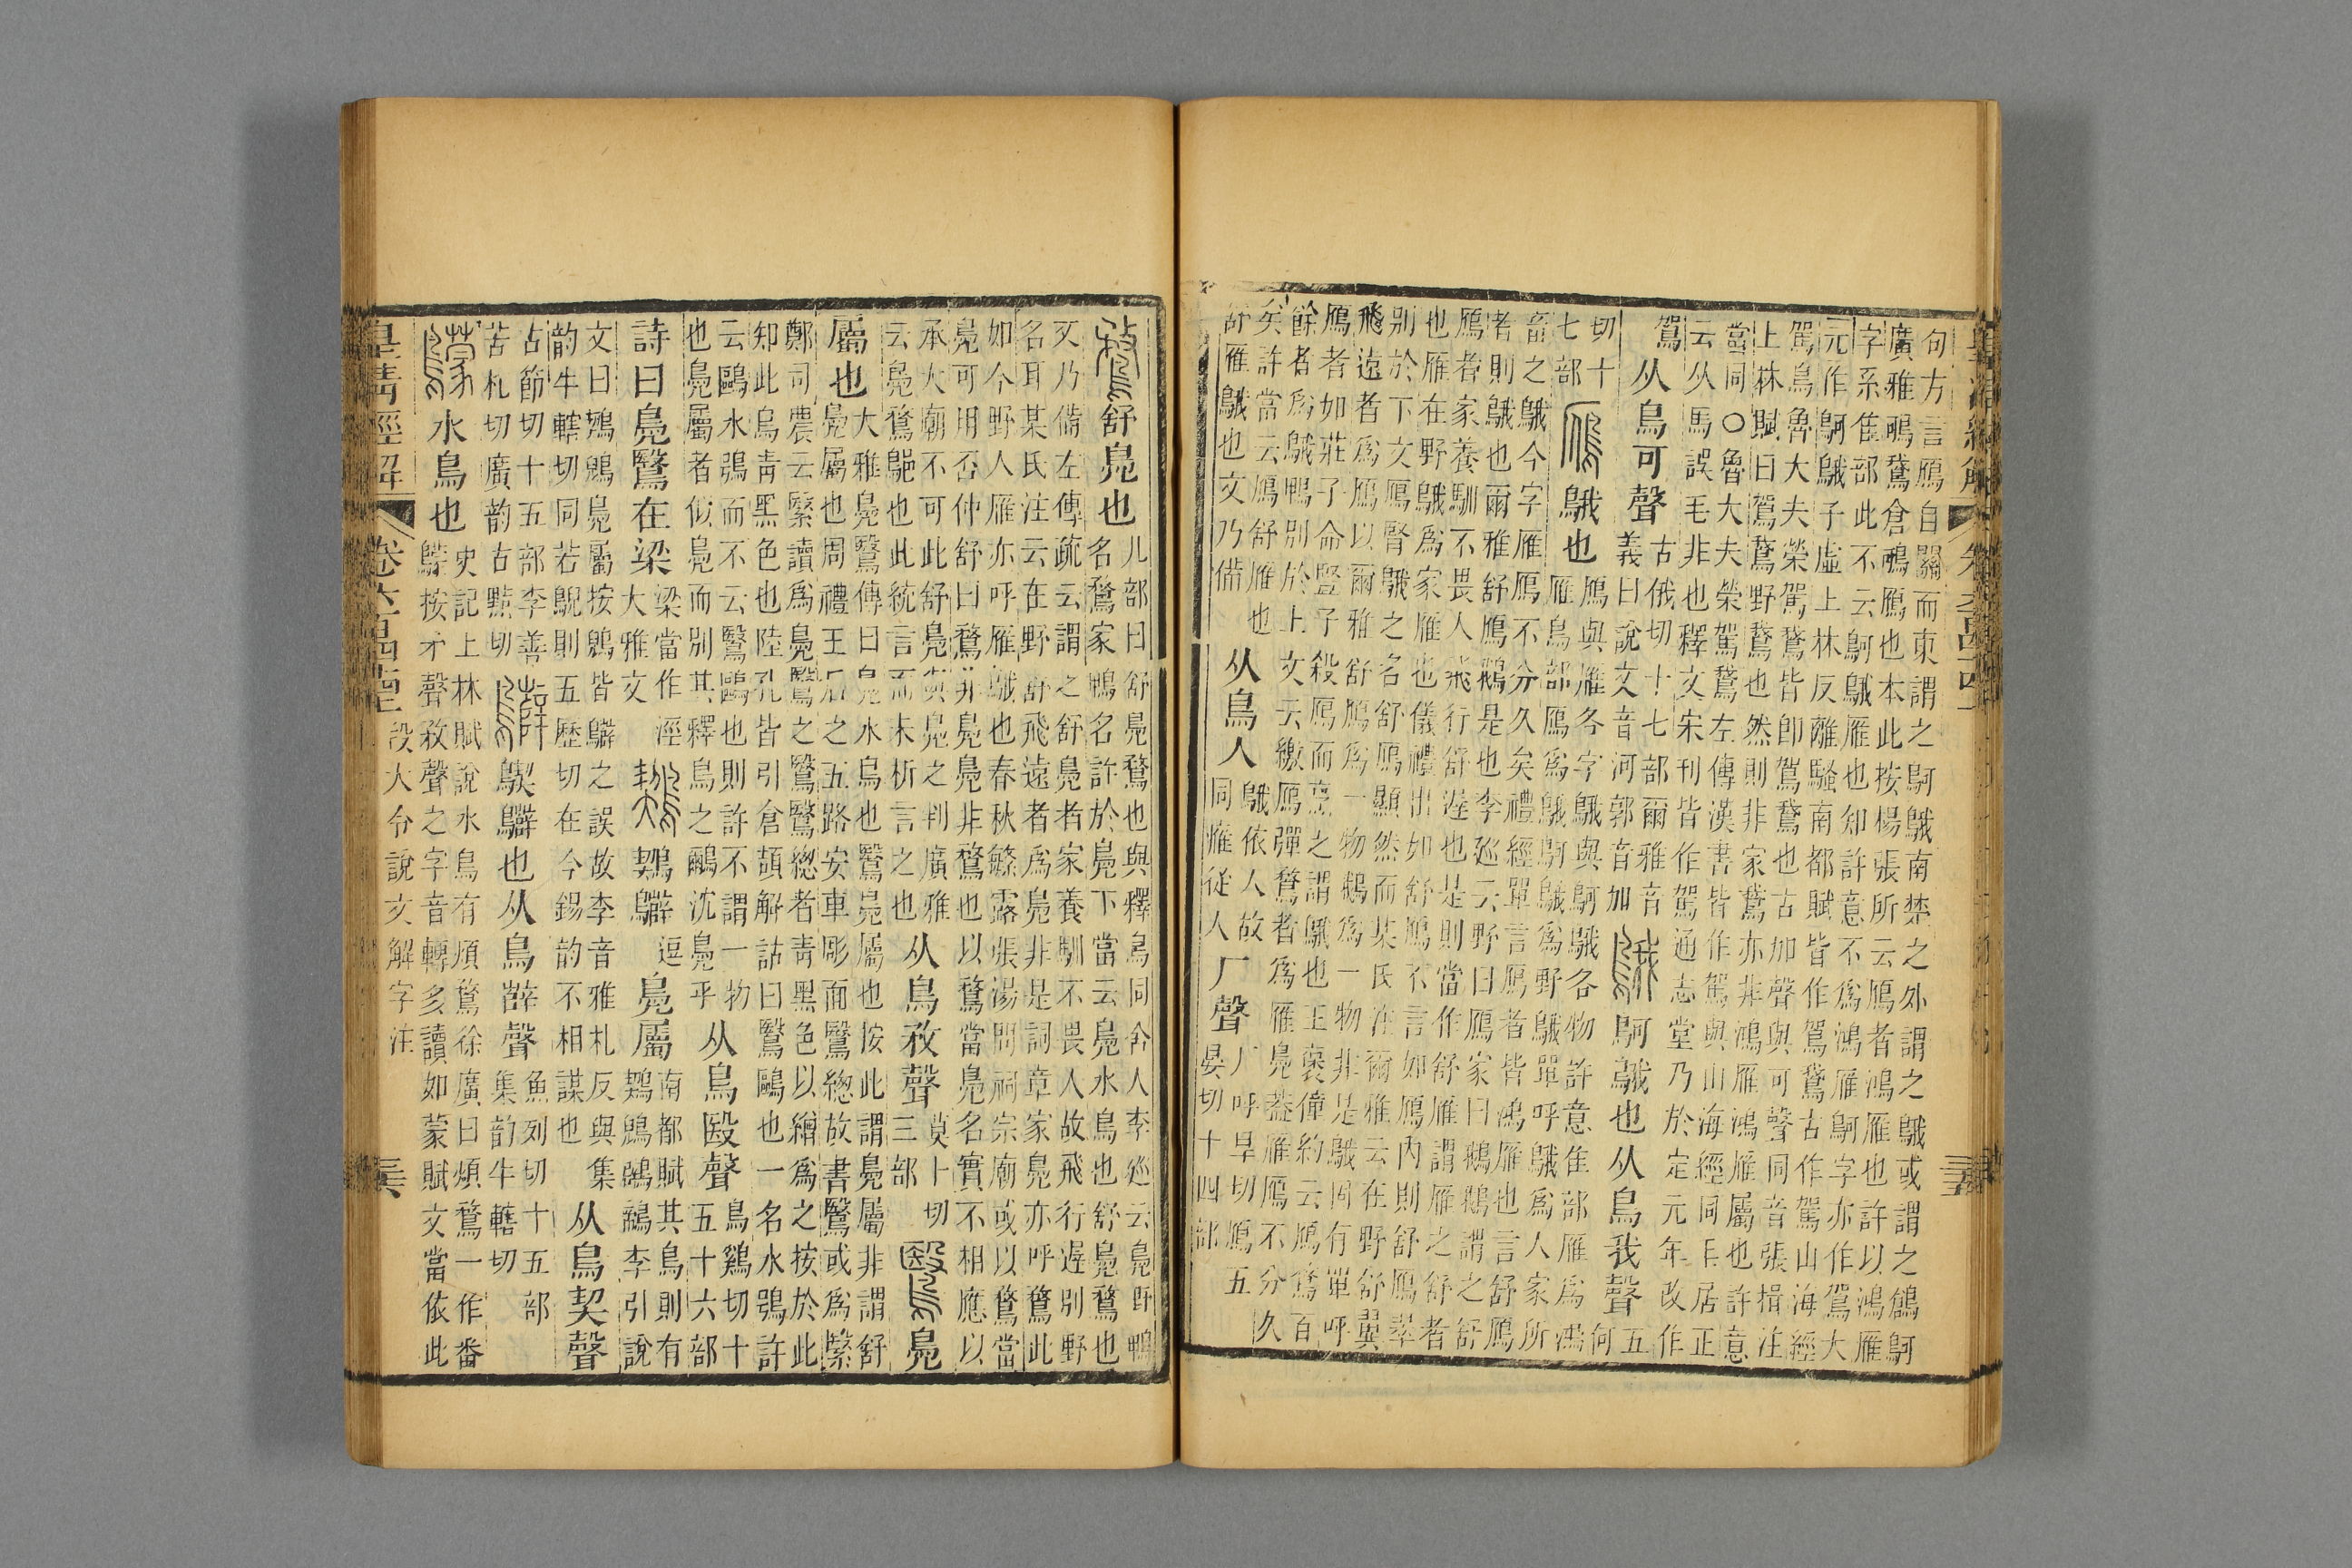 句方言鴈自關而東謂之鴚䳘南楚之外謂之䳘或謂之鶬鴚
廣雅鴚鵞倉鴚鴈也本此按楊張所云鴈者鴻雁也許以鴻雁
字系隹部此不云鴚䳘雁也知許意不爲鴻雁鴚字亦作鴐大
元作鴚䳘子虛上林反離騷南都賦皆作鴐鵞古作駕山海經
駕鳥魯大夫榮駕鵞皆卽鴐鵞也古加聲與可聲同音張揖注
上林賦曰鴐鵞野鵞也然則非家鵞亦非鴻雁鴻雁屬也許意
當同○魯大夫榮駕鵞左傳漢書皆作駕與山海經同日居正
云从馬誤毛非也釋文宋刊皆作駕通志堂乃於定元年改作
鴐
从鳥可聲
古俄切十七部爾雅音
義曰說文音河郭音加
䳘
鴚䳘也从鳥我聲
五何
切十
七部
鴈
䳘也
鴈與雁各字䳘與鴚䳘各物許意隹部雁爲鴻
雁鳥部鴈爲䳘鴚䳘爲野䳘單呼䳘爲人家所
音之䳘今字雁鴈不分久矣禮經單言鴈者皆鴻雁也言舒鴈
者則䳘也爾雅舒鴈鵝是也李巡云野曰鴈家曰鵝鵝謂之舒
鴈者家養馴不畏人飛行舒遲也是則當作舒雁謂雁之舒者
也雁在野䳘爲家雁也儀禮出如舒鴈不言如鴈內則舒鴈翠
別於下文鴈腎䳘之名舒鴈顯然而某氏注爾雅云在野舒翼
飛遠者爲鴈以爾雅舒鴈爲一物鵝爲一物非是䳘固有單呼
鴈者如莊子命豎子殺鴈而烹之謂䳘也王褒僮約云鴈鶩百
餘者爲䳘鴨別於上文云繳鴈彈鶩者爲雁鳧蓋雁鴈不分久
矣許當云鴈舒雁也
舒雁䳘也文乃備
从鳥人
䳘依人故
同雁從人
厂聲
厂呼旱切鴈五
晏切十四部
鶩
舒鳧也
几部曰舒鳧鶩也與釋鳥同舍人李巡云鳧野鴨
名鶩家鴨名許於鳧下當云鳧水鳥也舒鳧鶩也
文乃備左傳疏云謂之舒鳧者家養馴不畏人故飛行遲別野
名耳某氏注云在野舒飛遠者爲鳧非是詞章家鳧亦呼鶩此
如今野人雁亦呼雁䳘也春秋繁露張湯問祠宗廟或以鶩當
鳧可用否仲舒曰鶩非鳧鳧非鶩也以鶩當鳧名實不相應以
承大廟不可此舒鳧與鳧之判廣雅
云鳧鶩䴇也此統言而未析言之也
从鳥敄聲
莫卜切
三部
鷖
鳧
屬也
大雅鳧鷖傳曰鳧水鳥也鷖鳧屬也按此謂鳧屬非謂舒
鳧屬也周禮王后之五路安車彫面鷖緫故書鷖或爲繄
鄭司農云繄讀爲鳧鷖之鷖鷖緫者青黑色以繒爲之按於此
知此鳥青黑色也陸孔皆引倉頡解詁曰鷖鷗也一名水鴞許
云鷗水鴞而不云鷖鷗也則許不謂一物
也鳧屬者似鳧而別其釋鳥之鸍沈鳧乎
从鳥殹聲
鳥雞切十
五十六部
詩曰鳧鷖在梁
梁當作涇
大雅文
䳶
䳶鸊
逗
鳧屬
南都賦其鳥則有
䳶鶂鸊鶙李引說
文曰䳶鶂鳧屬按鶂皆鸊之誤故李音雅札反與集
韵牛轄切同若鶂則五歷切在今錫韵不相謀也
从鳥契聲
古節切十五部李善
苦札切廣韵古黠切
䳶鸊也从鳥辥聲
魚列切十五部
集韵牛轄切
䴌
水鳥也
史記上林賦說水鳥有煩鶩徐廣曰煩鶩一作番
䴌按矛聲敄聲之字音轉多讀如蒙賦文當依此
皇清經解
卷六百四十四
段大令說文解字注